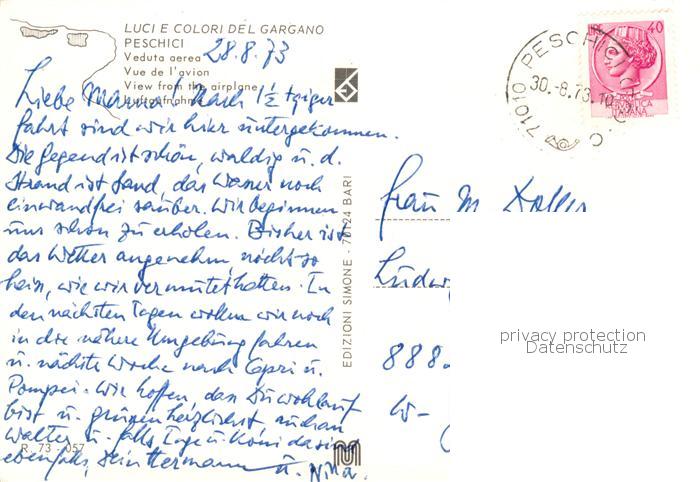 LUCI E COLORI DEL GARGANO
PESCHICI 28.8.73
Veduta aerea
Vue de l'avion
View from the airplane
Luftaufnahme
Liebe Mama! Nach 1½ tägiger
fahrt sind wir hier untergekommen.
Die Gegend ist schön, waldig u. d.
Strand ist Sand, das Wasser noch
einwandfrei sauber. Wir beginnen
uns schon zu erholen. Bisher ist
das Wetter angenehm, nicht so
heiß, wie wir vermutet hatten. In
den nächsten Tagen wollen wir noch
in die nähere Umgebung fahren
u. nächste Woche nach Capri u.
Pompei. Wir hoffen, dass Du wohlauf
bist u. grüssen herzlichst, auch an
Walter u. falls Inge u. Koni da sind
ebenfalls, Dein Hermann
u. Nina.
R. 73 - 057
EDIZIONI SIMONE - 70124 BARI
71010 PESCHICI
30.-8.73.10
LIRE 40
REPUBBLICA
ITALIANA
Frau M
Ludw
888
W-
privacy protection
Datenschutz